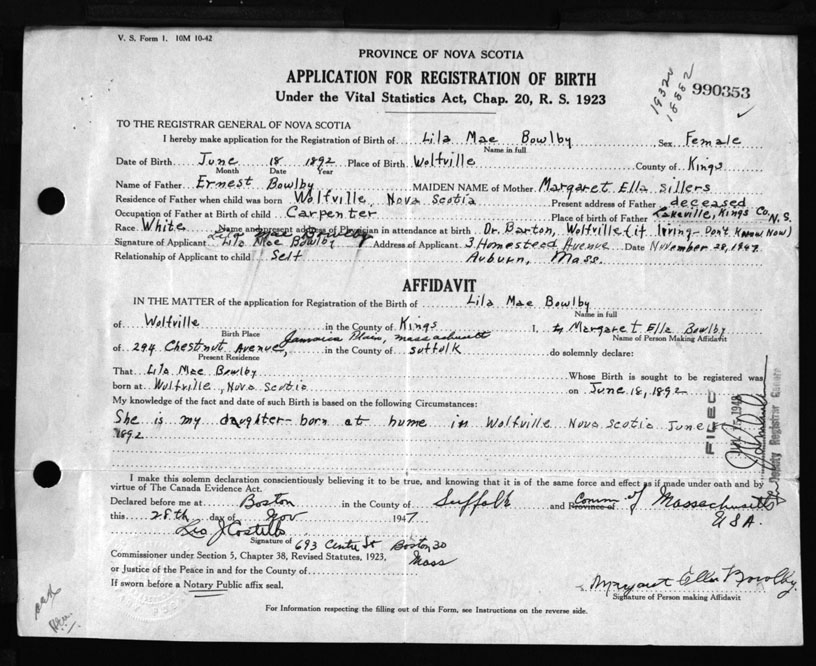 V. S. Form 1. 10M 10-42
PROVINCE OF NOVA SCOTIA
APPLICATION FOR REGISTRATION OF BIRTH
Under the Vital Statistics Act, Chap. 20, R. S. 1923
19320
18882
990353
TO THE REGISTRAR GENERAL OF NOVA SCOTIA
I hereby make application for the Registration of Birth of Lila Mae Bowlby Sex Female
Name in full
Date of Birth June 18 1892 Place of Birth Wolfville County of Kings
Month Date Year
Name of Father Ernest Bowlby MAIDEN NAME of Mother Margaret Ella Sillers
Residence of Father when child was born Wolfville, Nova Scotia Present address of Father deceased
Occupation of Father at Birth of child Carpenter Place of birth of Father Lakeville, Kings Co. N.S.
Race White Name and present address of Physician in attendance at birth Dr. Barton, Wolfville (if living - Don't Know Now)
Lila Mae Bowlby
Signature of Applicant Lila Mae Bowlby Address of Applicant 3 Homestead Avenue Date November 28, 1947.
Relationship of Applicant to child Self Auburn, Mass.
AFFIDAVIT
IN THE MATTER of the application for Registration of the Birth of Lila Mae Bowlby
Name in full
of Wolfville in the County of Kings I, Margaret Ella Bowlby
Birth Place Name of Person Making Affidavit
of 294 Chestnut Avenue, Jamaica Plain, Massachusetts in the County of Suffolk do solemnly declare:
Present Residence
That Lila Mae Bowlby Whose Birth is sought to be registered was
born at Wolfville, Nova Scotia on June 18, 1892
My knowledge of the fact and date of such Birth is based on the following Circumstances:
She is my daughter - born at home in Wolfville Nova Scotia June
1892
FILED
Deputy Registrar General
I make this solemn declaration conscientiously believing it to be true, and knowing that it is of the same force and effect as if made under oath and by
virtue of The Canada Evidence Act.
Declared before me at Boston in the County of Suffolk and Province of Comm of Massachusetts
this 28th day of Nov 1947 USA.
Leo J Costello
Signature of 693 Centre St Boston 30
Commissioner under Section 5, Chapter 38, Revised Statutes, 1923, Mass
or Justice of the Peace in and for the County of
If sworn before a Notary Public affix seal.
Margaret Ella Bowlby
Signature of Person making Affidavit
For Information respecting the filling out of this Form, see Instructions on the reverse side.